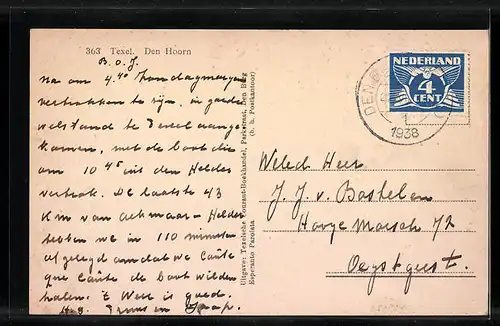 363 Texel. Den Hoorn
B.O.J.
Na om 4.40 Zondagmorgen
vertrokken te zijn, in goede
welstand te Texel aange-
komen, met de boot die
om 10 45 uit den Helder
vertrok. De laatste 43
Km van Alkmaar - Helder
hebben we in 110 minuten
afgelegd omdat we coûte
que coûte de boot wilden
halen. 't Weer is goed.
Uitgave: Texelsche Courant-Boekhandel, Parkstraat, Den Burg
(b. h. Postkantoor)
Esperanto Parolata
NEDERLAND
4
CENT
DEN
1938
Weled Heer
J. J. v. Bostelen
Hooge Morsch 72
Oegstgeest.